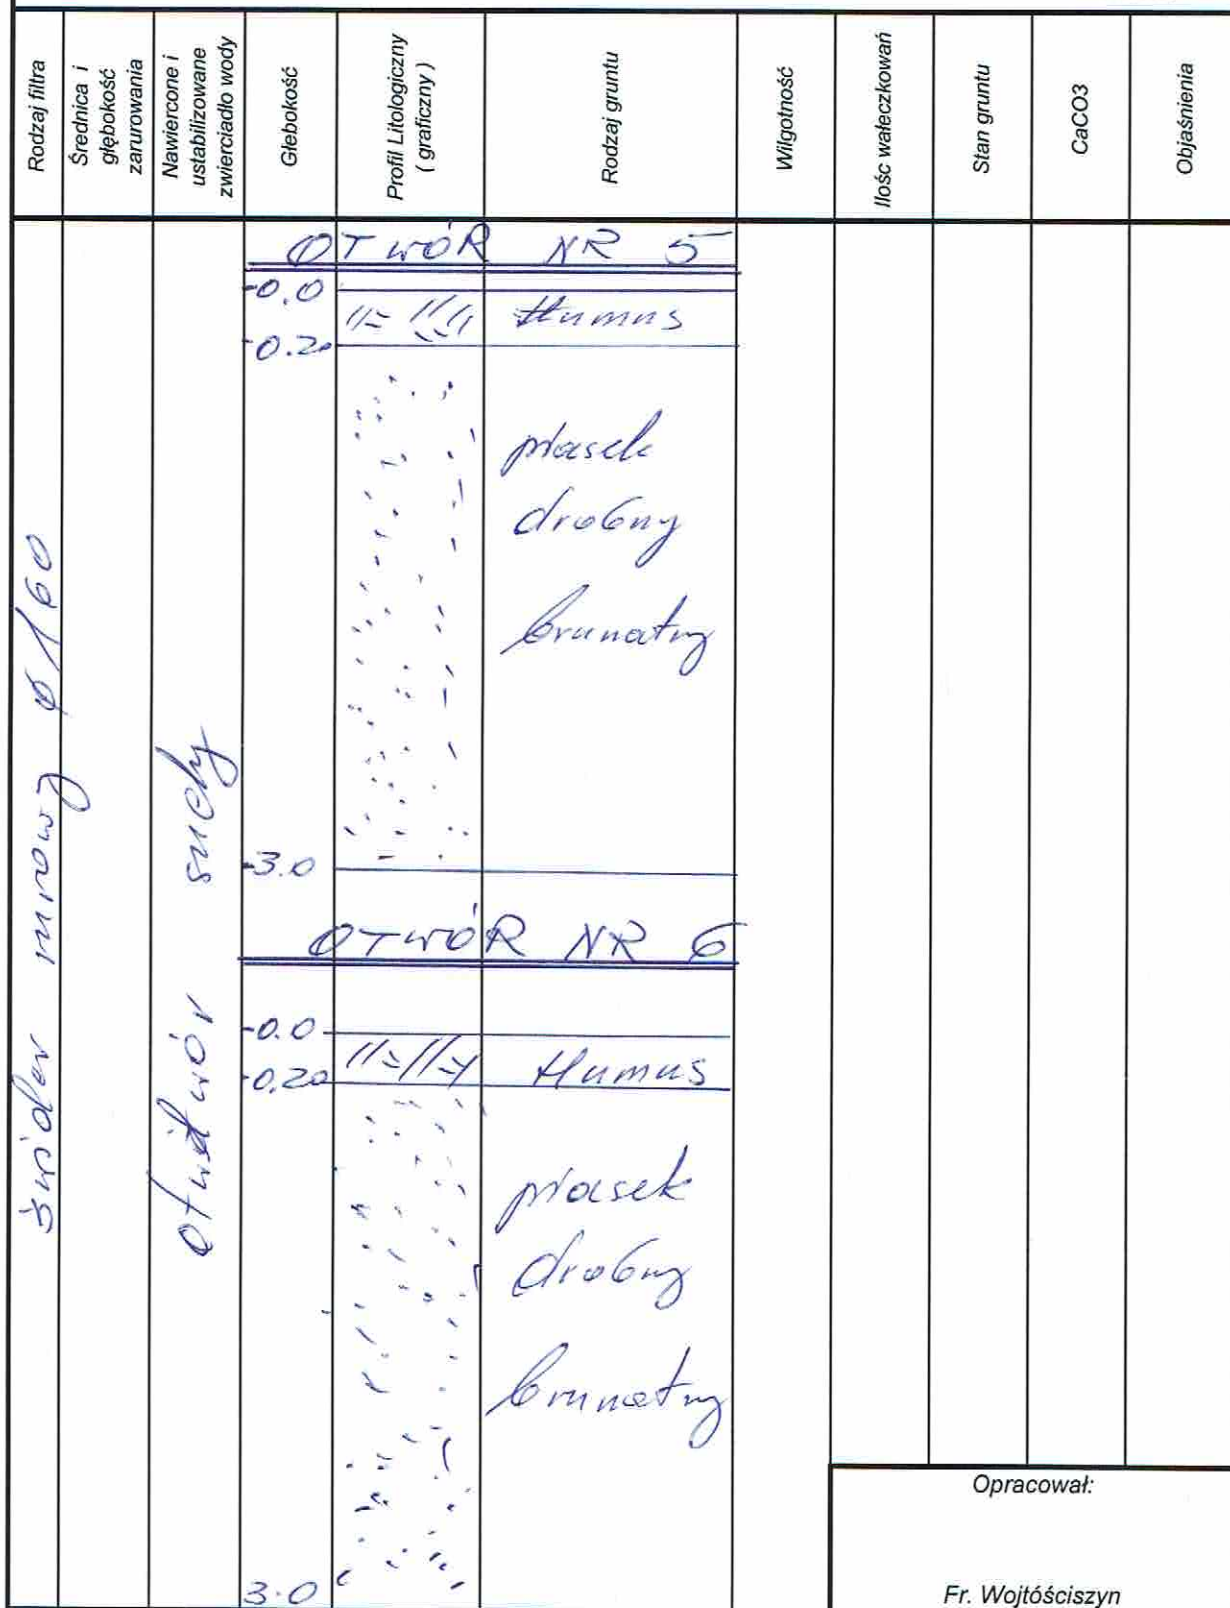 Rodzaj filtra
Średnica i
głębokość
zarurowania
Nawiercone i
ustabilizowane
zwierciadło wody
Głebokość
Profil Litologiczny
( graficzny )
Rodzaj gruntu
Wilgotność
Ilośc wałeczkowań
Stan gruntu
CaCO3
Objaśnienia
OTWÓR NR 5
0.0
Humus
0.20
piasek
drobny
brunatny
3.0
OTWÓR NR 6
0.0
Humus
0.20
piasek
drobny
brunatny
3.0
świder ø 160
suchy
Opracował:
Fr. Wojtóściszyn